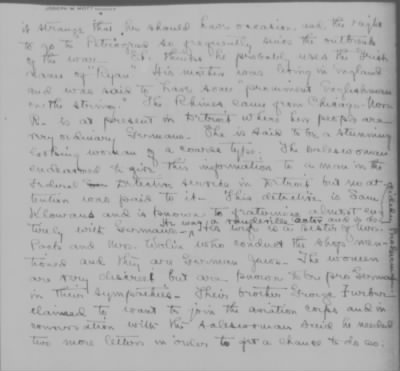 JOSEPH W. MOTT
is strange that he should have occasion and the right
to go to Petrograd so frequently since the outbreak
of the war. "A" thinks he probably uses the "Irish
name of "Ryan" His mother was living in England
and was said to have some "prominent Englishman
on the string." The Rhines came from Chicago. Mrs.
R. is at present in Detroit where her people are
very ordinary Germans. She is said to be a stunning
looking woman of a coarse type. The saleswoman
endeavored to give this information to a man in the
Federal Detective service in Detroit but no at-
tention was paid to it. This detective is Sam
and is known to fraternize almost en-
He was a vaudeville actor and is
tirely with Germans. His wife is a sister of Mrs.
and Mrs. who conduct the shops men-
tioned and they are German Jews. The women
are very discreet but are known to be pro German
in their sympathies. Their brother George
claimed to want to join the aviation corps and in
conversation with the saleswoman said he needed
two more letters in order to get a chance to do so.